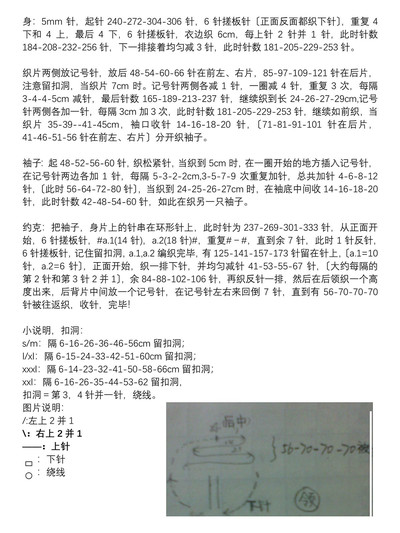 身：5mm 针，起针 240-272-304-306 针，6 针搓板针〔正面反面都织下针〕，重复 4
下和 4 上，最后 4 下，6 针搓板针，衣边织 6cm，每上针 2 针并 1 针，此时针数
184-208-232-256 针，下一排接着均匀减 3 针，此时针数 181-205-229-253 针。
织片两侧放记号针，放后 48-54-60-66 针在前左、右片，85-97-109-121 针在后片，
注意留扣洞，当织片 7cm 时。记号针两侧各减 1 针，一圈减 4 针，重复 3 次，每隔
3-4-4-5cm 减针，最后针数 165-189-213-237 针，继续织到长 24-26-27-29cm,记号
针两侧各加一针，每隔 3cm 加 3 次，此时针数 181-205-229-253 针，继续如前织，当
织片 35-39--41-45cm，袖口收针 14-16-18-20 针，〔71-81-91-101 针在后片，
41-46-51-56 针在前左、右片〕分开织袖子。
袖子: 起 48-52-56-60 针, 织松紧针, 当织到 5cm 时, 在一圈开始的地方插入记号针,
在记号针两边各加 1 针，每隔 5-3-2-2cm,3-5-7-9 次重复加针，总共加针 4-6-8-12
针，〔此时 56-64-72-80 针〕，当织到 24-25-26-27cm 时，在袖底中间收 14-16-18-20
针，此时针数 42-48-54-60 针，如此在织另一只袖子。
约克：把袖子，身片上的针串在环形针上，此时针为 237-269-301-333 针，从正面开
始，6 针搓板针，#a.1(14 针)，a.2(18 针)#，重复#－#，直到余 7 针，此时 1 针反针，
6 针搓板针，记住留扣洞, a.1,a.2 编织完毕, 有 125-141-157-173 针留在针上,〔a.1=10
针，a.2=6 针〕，正面开始，织一排下针，并均匀减针 41-53-55-67 针，〔大约每隔的
第 2 针和第 3 针 2 并 1〕，余 84-88-102-106 针，再织反针一排，然后在后领织一个高
度出来，后背片中间放一个记号针，在记号针左右来回倒 7 针，直到有 56-70-70-70
针被往返织，收针，完毕！
小说明，扣洞：
s/m：隔 6-16-26-36-46-56cm 留扣洞；
l/xl：隔 6-15-24-33-42-51-60cm 留扣洞；
xxxl：隔 6-14-23-32-41-50-58-66cm 留扣洞；
xxl：隔 6-16-26-35-44-53-62 留扣洞,
扣洞＝第 3，4 针并一针，绕线。
图片说明：
/:左上 2 并 1
\：右上 2 并 1
——：上针
：下针
：绕线
56-70-70-70
下针
领